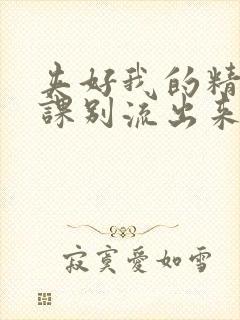 好我的精
課别流出来
寂寞愛如雪